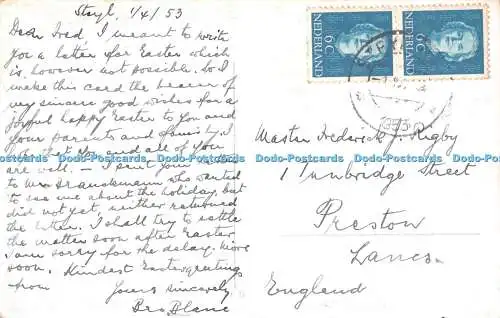 Steyl, 1/4/53
Dear Fred, I meant to write
you a letter for Easter which
is, however not possible. So I
make this card the bearer of
very sincere good wishes for a
joyful happy Easter to you and
your parents and family. I
that and all of you
are well. I sent your
to Mrs who wanted
to see me about the holiday, but
did not yet, neither returned
the letter. I shall try to settle
the matter soon after Easter.
I am sorry for the delay. More
soon. Kindest Easter greetings
from Yours sincerely,
Bro Blanc
6c
NEDERLAND
6c
NEDERLAND
1953
Master Frederick J. Rigby
1 Tunbridge Street
Preston
Lancs.
England
Dodo-Postcards Dodo-Postcards Dodo-Postcards Dodo-Postcards Dodo-Postcards Dodo-Postcards